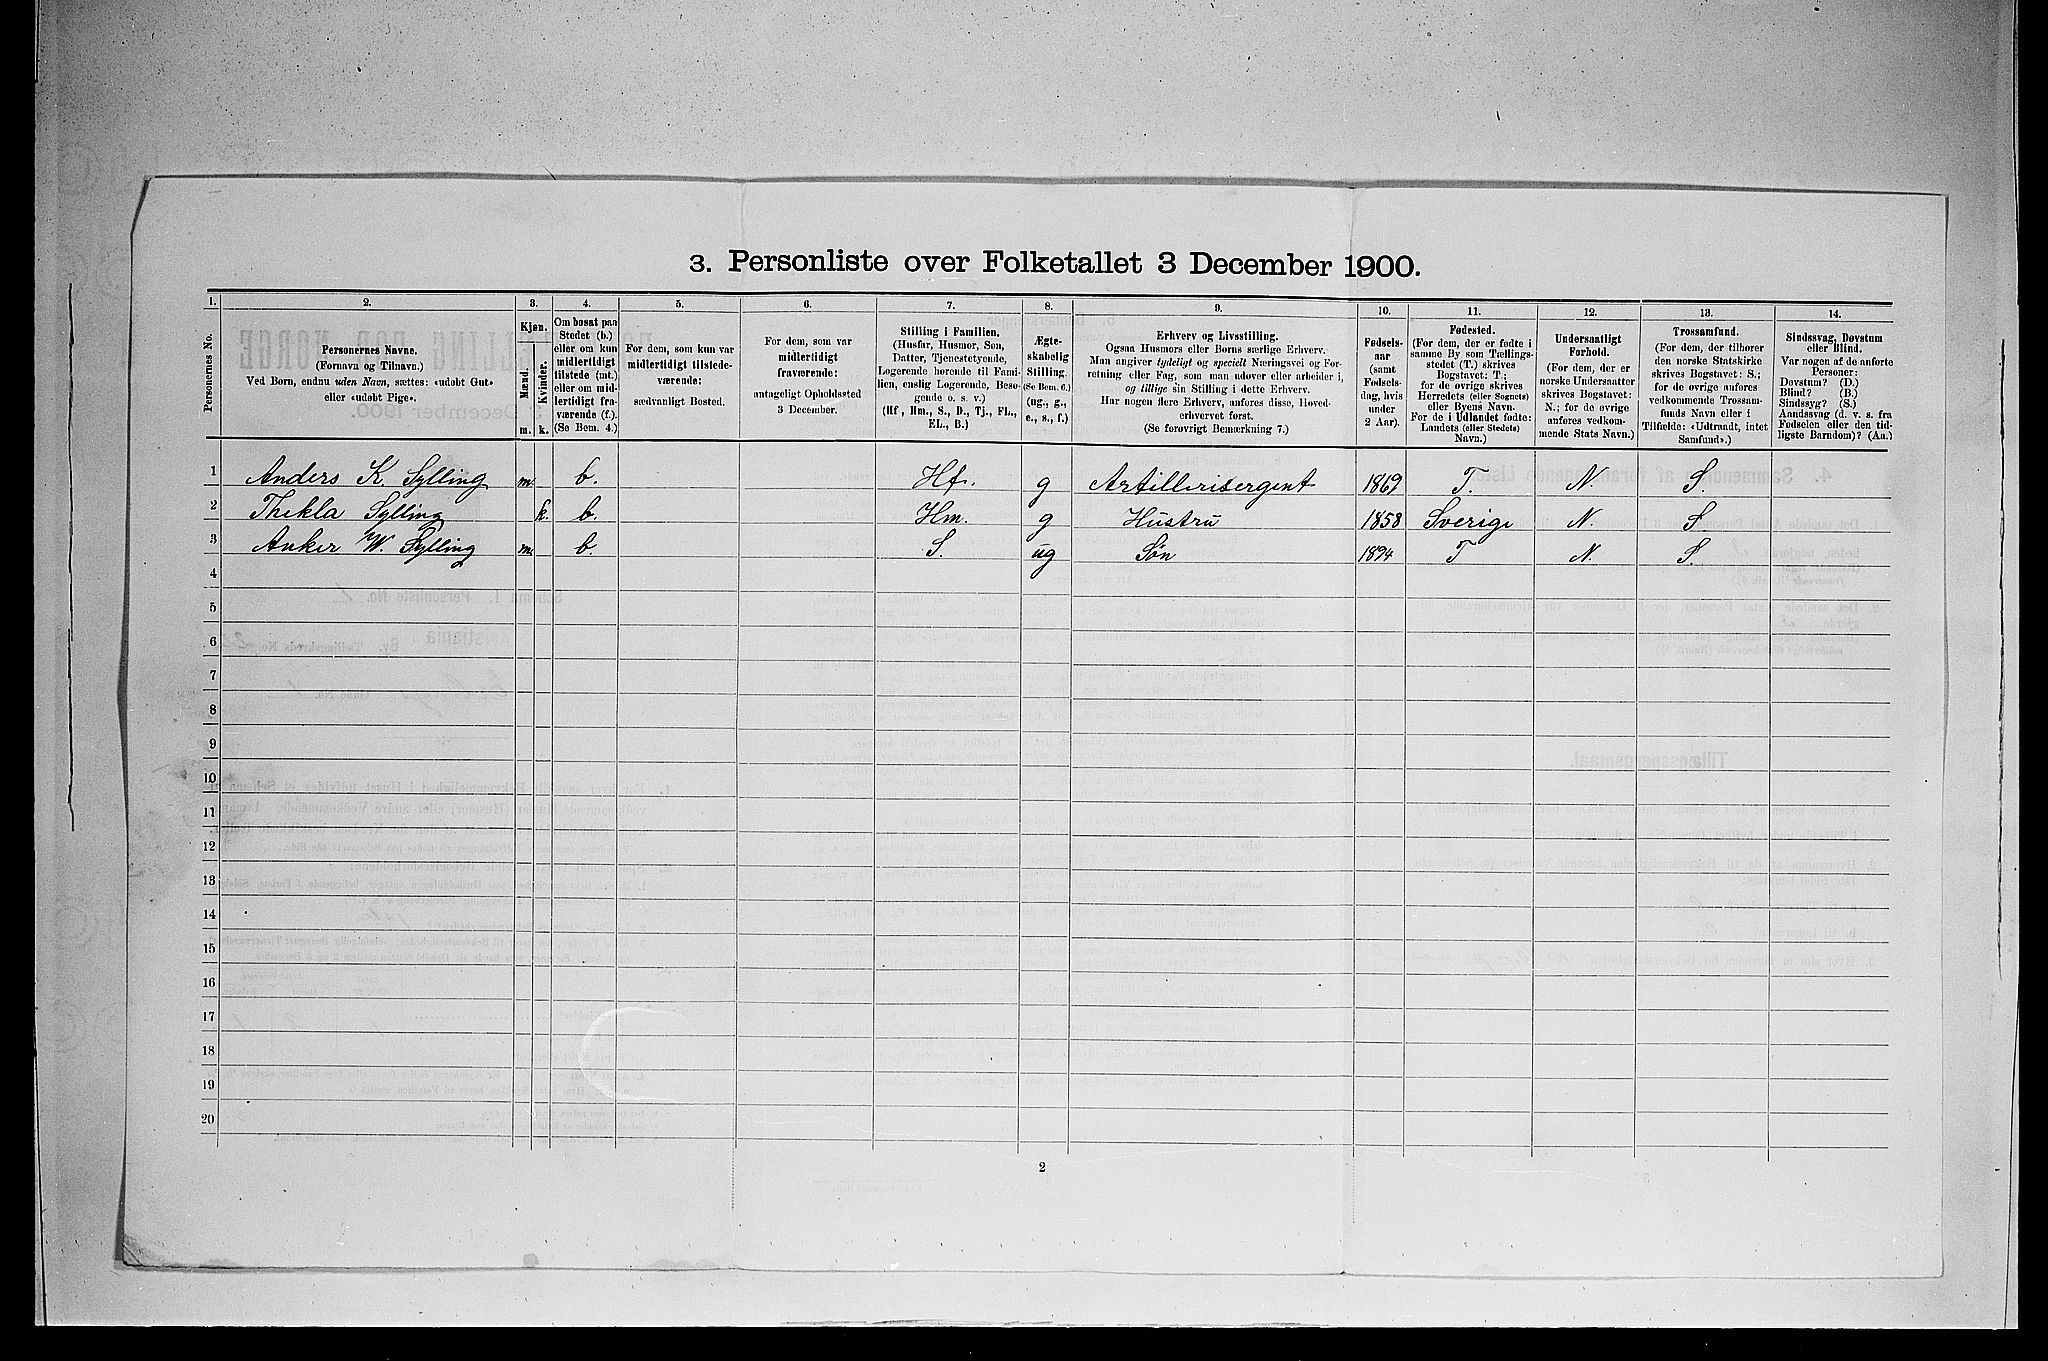 3. Personliste over Folketallet 3 December 1900.
1. 2. 3. 4. 5. 6. 7. 8. 9. 10. 11. 12. 13. 14.
Personernes No.
Personernes Navne.
(Fornavn og Tilnavn.)
Ved Børn, endnu uden Navn, sættes: «udøbt Gut»
eller «udøbt Pige».
Kjøn.
Mænd.
Kvinder.
m. k.
Om bosat paa
Stedet (b.)
eller om kun
midlertidigt
tilstede (mt.)
eller om mid-
lertidigt fra-
værende (f.).
(Se Bem. 4.)
For dem, som kun var
midlertidigt tilstede-
værende:
sædvanligt Bosted.
For dem, som var
midlertidigt
fraværende:
antageligt Opholdssted
3 December.
Stilling i Familien.
(Husfar, Husmor, Søn,
Datter, Tjenestetyende,
Logerende hørende til Fami-
lien, enslig Logerende, Besø-
gende o. s. v.)
(Hf., Hm., S., D., Tj., FL.,
EL., B.)
Ægte-
skabelig
Stilling.
(Se Bem. 6.)
(ug., g.,
e., s., f.)
Erhverv og Livsstilling.
Ogsaa Husmors eller Børns særlige Erhverv.
Man angiver tydeligt og specielt Næringsvei og For-
retning eller Fag, som man udøver eller arbeider i,
og tillige sin Stilling i dette Erhverv.
Har nogen flere Erhverv, anføres disse, Hoved-
erhvervet først.
(Se forøvrigt Bemærkning 7.)
Fødsels-
aar
(samt
Fødsels-
dag, hvis
under
2 Aar).
Fødested.
(For dem, der er fødte i
samme By som Tællings-
stedet (T.) skrives
Bogstavet: T.;
for de øvrige skrives
Herredets (eller Sognets)
eller Byens Navn.
For de i Udlandet fødte:
Landets (eller Stedets)
Navn.)
Undersaatligt
Forhold.
(For dem, der er
norske Undersaatter
skrives Bogstavet:
N.; for de øvrige
anføres vedkom-
mende Stats Navn.)
Trossamfund.
(For dem, der tilhører
den norske Statskirke
skrives Bogstavet: S.;
for de øvrige anføres
vedkommende Trossam-
funds Navn eller i
Tilfælde: «Udtraadt, intet
Samfund».)
Sindssvag, Døvstum
eller Blind.
Var nogen af de anførte
Personer:
Døvstum? (D.)
Blind? (B.)
Sindssyg? (S.)
Aandssvag (d. v. s. fra
Fødselen eller den tid-
ligste Barndom)? (Aa.)
1 Anders K. Sylling m. b. Hf. g Artillerisergent 1869 T. N. S.
2 Thekla Sylling k. b. Hm. g Hustru 1858 Sverige N. S
3 Anker W. Sylling m. b. S. ug Søn 1894 T N. S.
4
5
6
7
8
9
10
11
12
13
14
15
16
17
18
19
20
2